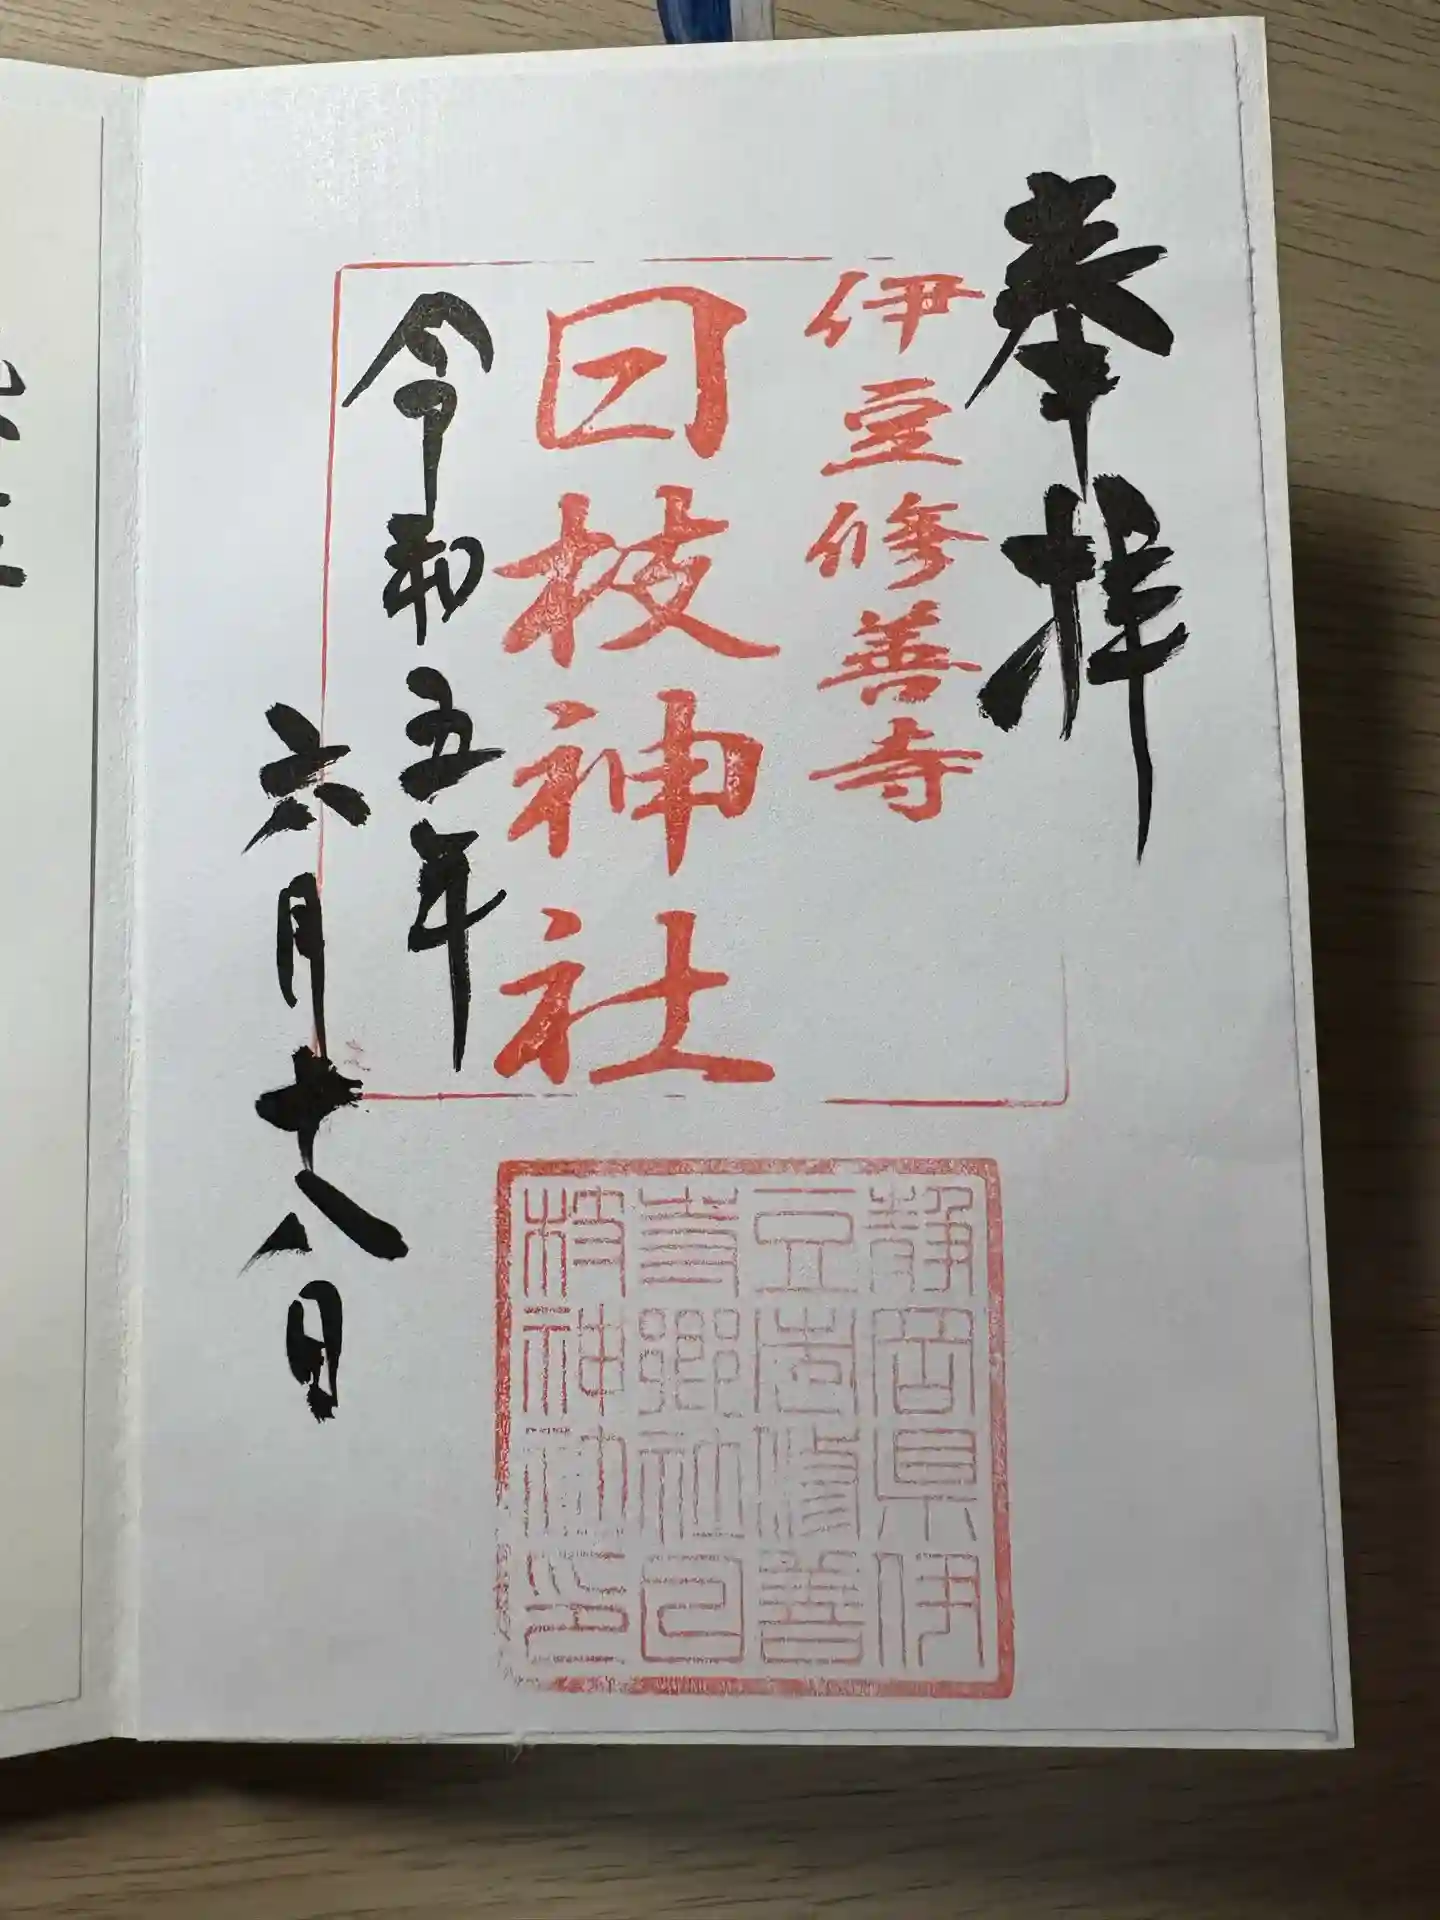 奉拝
伊豆修善寺
日枝神社
令和五年
六月十八日
静岡県伊
豆修善
寺郷社日
枝神社印